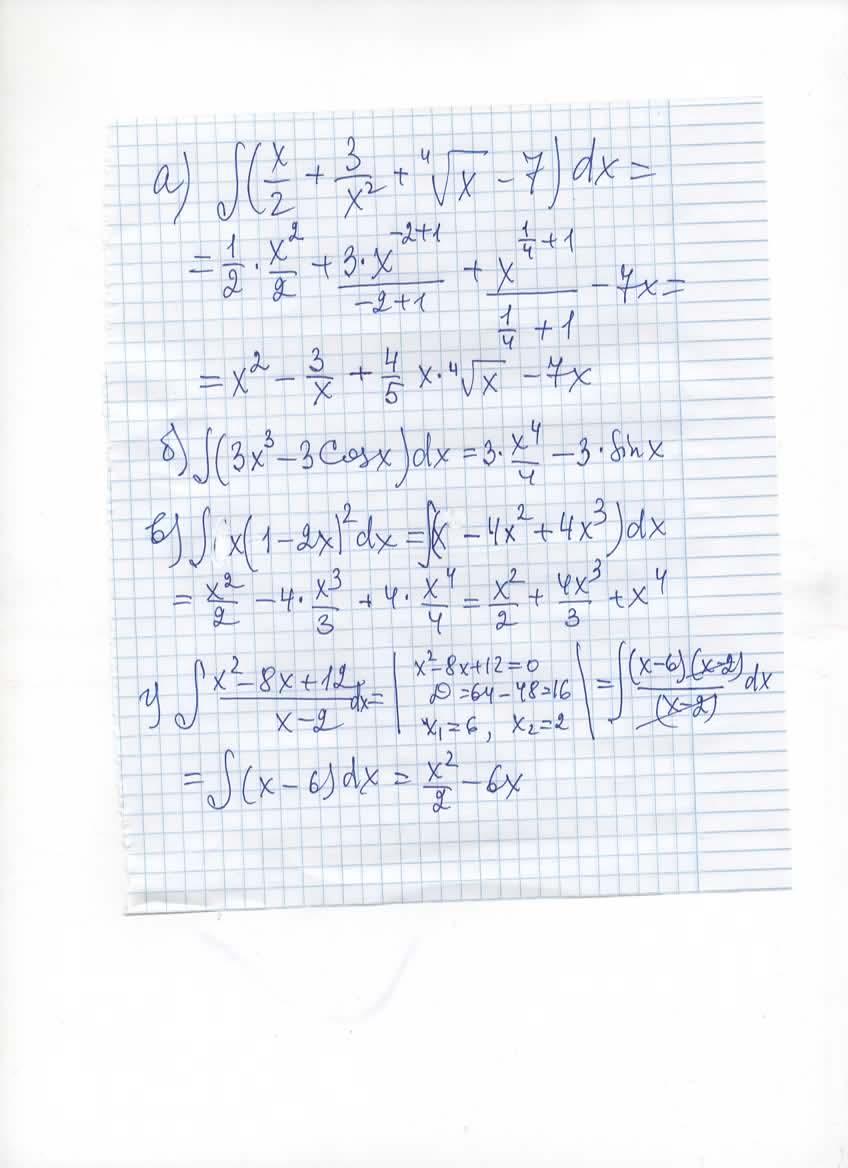 а) ∫(x/2 + 3/x² + ⁴√x - 7)dx =
= 1/2 · x²/2 + 3·x^(-2+1)/(-2+1) + x^(1/4+1)/(1/4+1) - 7x =
= x² - 3/x + 4/5 x·⁴√x - 7x
б) ∫(3x³ - 3Cosx)dx = 3·x⁴/4 - 3·Sinx
в) ∫x(1-2x)²dx = ∫(x - 4x² + 4x³)dx
= x²/2 - 4·x³/3 + 4·x⁴/4 = x²/2 + 4x³/3 + x⁴
г) ∫(x²-8x+12)/(x-2) dx = | x²-8x+12=0 D=64-48=16 x₁=6, x₂=2 | = ∫(x-6)(x-2)/(x-2) dx
= ∫(x-6)dx = x²/2 - 6x